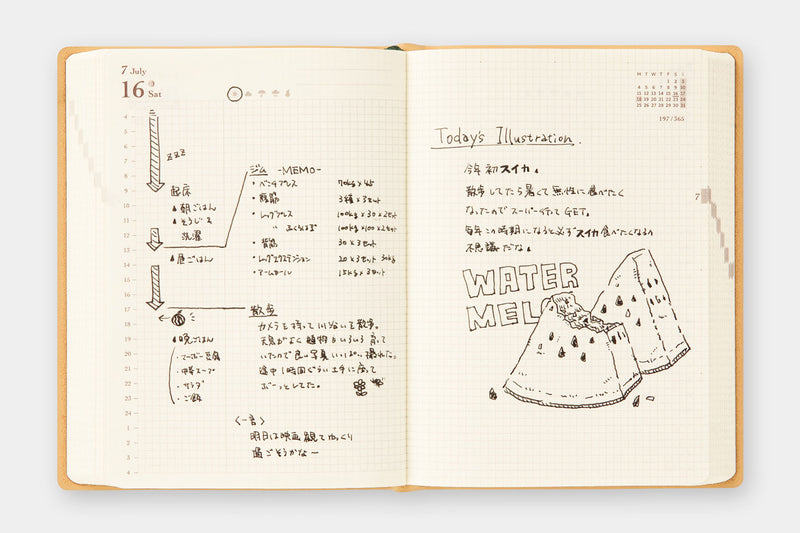 7 July
16 Sat
4
5
6
7
8
9
10
11
12
13
14
15
16
17
18
19
20
21
22
23
1
2
3
4
zzz
起床
朝ごはん
そうじ&
洗濯
昼ごはん
晩ごはん
・マーボー豆腐
・中華スープ
・サラダ
・ご飯
ジム -MEMO-
・ベンチプレス 70kg×45
・腹筋 3種×3セット
・レッグプレス 100kg×30×2セット
〃 ふくらはぎ 100kg×100×2セット
・背筋 30×3セット
・レッグエクステンション 20×3セット 30kg
・アームカール 15kg×3セット
散歩
カメラを持っていい気分で散歩。
天気がよく植物もいろいろ育って
いたので良い写真いっぱい撮れた。
途中1時間ぐらい土手に座って
ボーっとしてた。
〈一言〉
明日は映画観てゆっくり
過ごそうかな〜
M T W T F S S
1 2 3
4 5 6 7 8 9 10
11 12 13 14 15 16 17
18 19 20 21 22 23 24
25 26 27 28 29 30 31
197/365
7
Today's Illustration.
今年初スイカ
散歩してたら暑くて無性に食べたく
なったのでスーパー行ってGET。
毎年この時期になると必ずスイカ食べたくなるの
不思議だな。
WATER
MEL